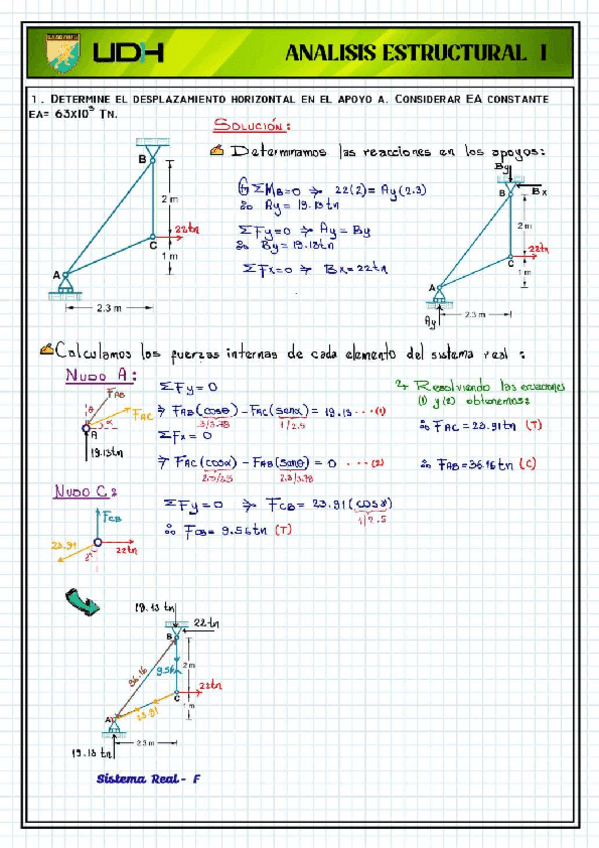 UDH
ANALISIS ESTRUCTURAL I
1. DETERMINE EL DESPLAZAMIENTO HORIZONTAL EN EL APOYO A. CONSIDERAR EA CONSTANTE
EA= 63X10³ TN.
SOLUCIÓN:
Determinamos las reacciones en los apoyos:
ΣM_B=0 ⇒ 22(2)= Ay(2.3)
∴ Ay= 19.13tn
ΣFy=0 ⇒ Ay= By
∴ By= 19.13tn
ΣFx=0 ⇒ Bx= 22tn
B
2 m
22tn
C
1 m
A
2.3 m
By
B
Bx
2 m
22tn
C
1 m
A
2.3 m
Ay
Calculamos las fuerzas internas de cada elemento del sistema real:
NUDO A:
F_AB
θ
F_AC
α
A
19.13tn
ΣFy=0
⇒ F_AB(cosθ) - F_AC(senα) = 19.13 ...(1)
3/3.78
1/2.5
ΣFx=0
⇒ F_AC(cosα) - F_AB(senθ) = 0 ...(2)
2.3/2.5
2.3/3.78
Resolviendo las ecuaciones
(1) y (2) obtenemos:
∴ F_AC = 23.91tn (T)
∴ F_AB= 36.16tn (C)
NUDO C:
F_CB
23.91
22tn
ΣFy=0 ⇒ F_CB= 23.91(cosγ)
1/2.5
∴ F_CB= 9.56tn (T)
19.13 tn
22tn
B
36.16
2 m
22tn
C
1 m
A
23.91
2.3 m
19.13 tn
Sistema Real - F